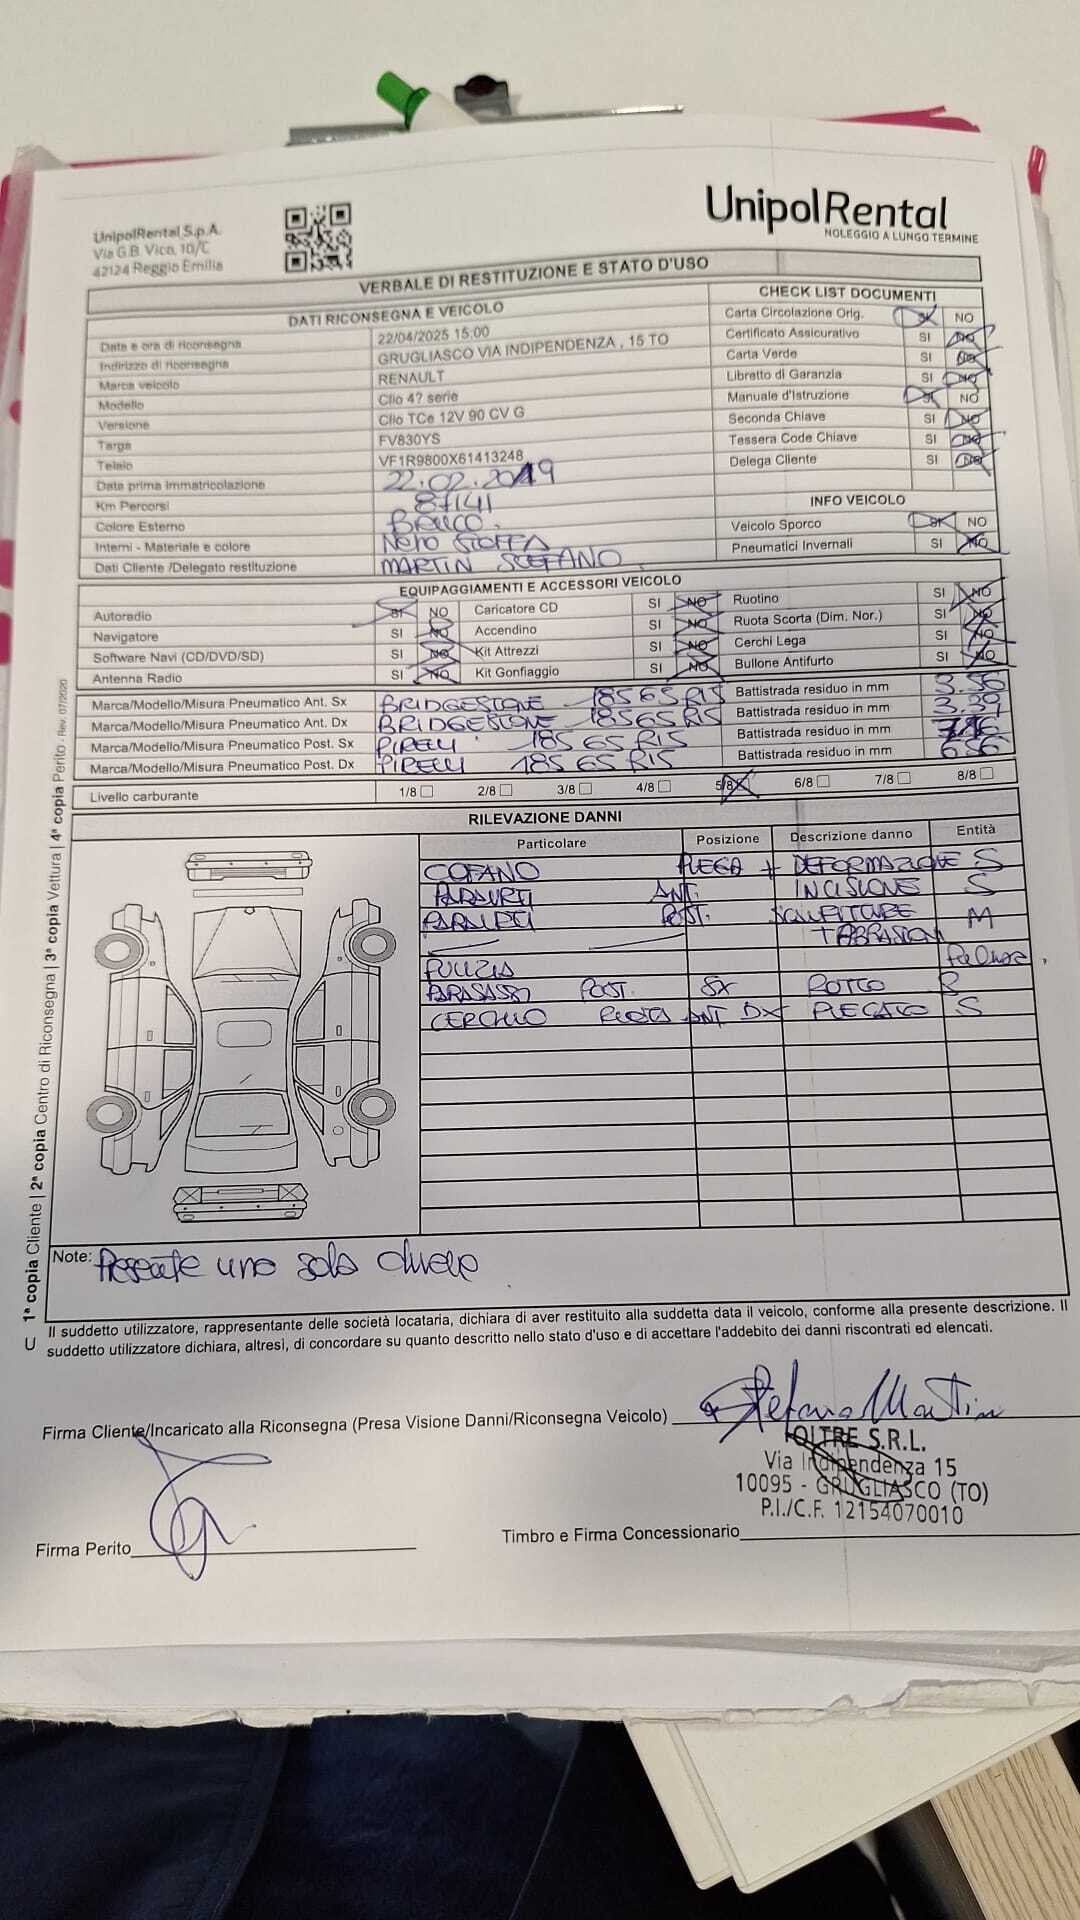 UnipolRental S.p.A.
Via G.B. Vico, 10/C
42124 Reggio Emilia
UnipolRental
NOLEGGIO A LUNGO TERMINE
VERBALE DI RESTITUZIONE E STATO D'USO
DATI RICONSEGNA E VEICOLO
Data e ora di riconsegna 22/04/2025 15:00
Indirizzo di riconsegna GRUGLIASCO VIA INDIPENDENZA , 15 TO
Marca veicolo RENAULT
Modello Clio 4? serie
Versione Clio TCe 12V 90 CV G
Targa FV830YS
Telaio VF1R9800X61413248
Data prima immatricolazione 22.02.2019
Km Percorsi 87141
Colore Esterno BIANCO.
Interni - Materiale e colore NERO STOFFA
Dati Cliente /Delegato restituzione MARTIN STEFANO
CHECK LIST DOCUMENTI
Carta Circolazione Orig. SI NO
Certificato Assicurativo SI NO
Carta Verde SI NO
Libretto di Garanzia SI NO
Manuale d'Istruzione SI NO
Seconda Chiave SI NO
Tessera Code Chiave SI NO
Delega Cliente SI NO
INFO VEICOLO
Veicolo Sporco SI NO
Pneumatici Invernali SI NO
EQUIPAGGIAMENTI E ACCESSORI VEICOLO
Autoradio SI NO Caricatore CD SI NO Ruotino SI NO
Navigatore SI NO Accendino SI NO Ruota Scorta (Dim. Nor.) SI NO
Software Navi (CD/DVD/SD) SI NO Kit Attrezzi SI NO Cerchi Lega SI NO
Antenna Radio SI NO Kit Gonfiaggio SI NO Bullone Antifurto SI NO
Marca/Modello/Misura Pneumatico Ant. Sx BRIDGESTONE 185 65 R15 Battistrada residuo in mm 3.56
Marca/Modello/Misura Pneumatico Ant. Dx BRIDGESTONE 185 65 R15 Battistrada residuo in mm 3.39
Marca/Modello/Misura Pneumatico Post. Sx PIRELLI 185 65 R15 Battistrada residuo in mm
Marca/Modello/Misura Pneumatico Post. Dx PIRELLI 185 65 R15 Battistrada residuo in mm 656
Livello carburante 1/8 2/8 3/8 4/8 5/8 6/8 7/8 8/8
RILEVAZIONE DANNI
Particolare Posizione Descrizione danno Entità
COFANO PIEGA + DEFORMAZIONE S
PARAURTI ANT. INCISIONE S
PARAURTI POST. SCALFITURE M
+ ABRASIONI
PULIZIA
PARASASSI POST. SX ROTTO R
CERCHIO RUOTA ANT DX PIEGATO S
Note: Presente una sola chiave
1ª copia Cliente | 2ª copia Centro di Riconsegna | 3ª copia Vettura | 4ª copia Perito - Rev. 07/2020
U
Il suddetto utilizzatore, rappresentante delle società locataria, dichiara di aver restituito alla suddetta data il veicolo, conforme alla presente descrizione. Il
suddetto utilizzatore dichiara, altresì, di concordare su quanto descritto nello stato d'uso e di accettare l'addebito dei danni riscontrati ed elencati.
Firma Cliente/Incaricato alla Riconsegna (Presa Visione Danni/Riconsegna Veicolo) Stefano Martin
OLTRE S.R.L.
Via Indipendenza 15
10095 - GRUGLIASCO (TO)
P.I./C.F. 12154070010
Firma Perito
Timbro e Firma Concessionario